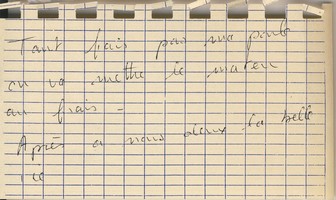 Tant fais pas ma poule
on va mettre le maten
au frais -
Après a nous deux la belle
vie